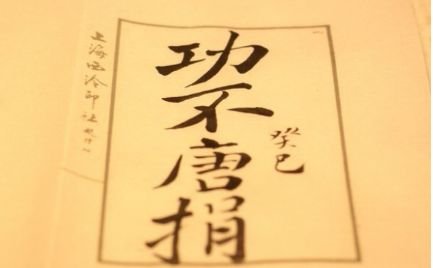 功不唐捐
癸巳
上海西泠印社